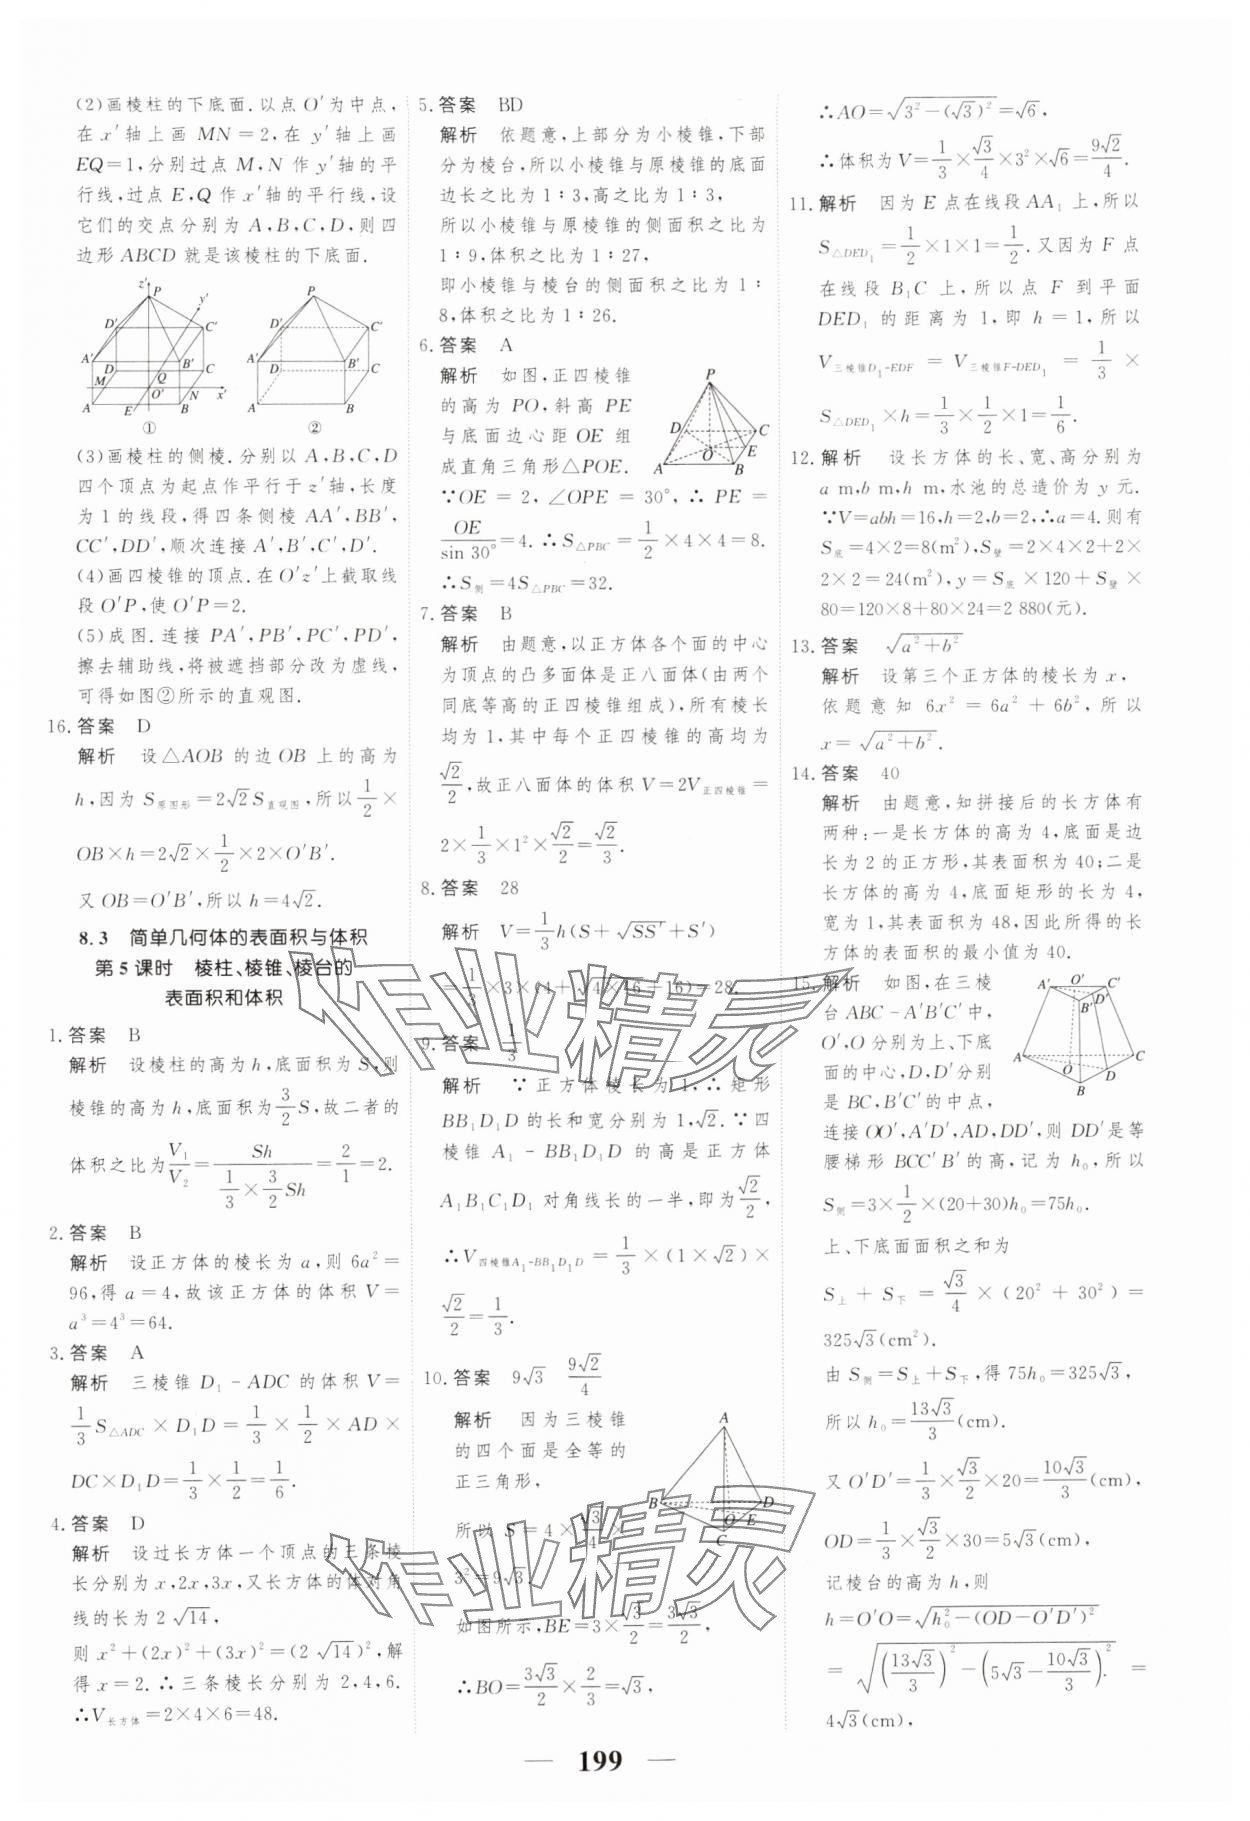 (2)画棱柱的下底面.以点O′为中点,
在x′轴上画MN=2,在y′轴上画
EQ=1,分别过点M,N作y′轴的平
行线,过点E,Q作x′轴的平行线,设
它们的交点分别为A,B,C,D,则四
边形ABCD就是该棱柱的下底面.
z′ P y′ D′ C′ A′ B′ D C M Q O′ N x′ A E B ①
P D′ C′ A′ B′ D C A B ②
(3)画棱柱的侧棱.分别以A,B,C,D
四个顶点为起点作平行于z′轴,长度
为1的线段,得四条侧棱AA′,BB′,
CC′,DD′,顺次连接A′,B′,C′,D′.
(4)画四棱锥的顶点.在O′z′上截取线
段O′P,使O′P=2.
(5)成图.连接PA′,PB′,PC′,PD′,
擦去辅助线,将被遮挡部分改为虚线,
可得如图②所示的直观图.
16.答案 D
解析 设△AOB的边OB上的高为
h,因为S原图形=2√2S直观图,所以1/2×
OB×h=2√2×1/2×2×O′B′.
又OB=O′B′,所以h=4√2.
8.3 简单几何体的表面积与体积
第5课时 棱柱、棱锥、棱台的
表面积和体积
1.答案 B
解析 设棱柱的高为h,底面积为S,则
棱锥的高为h,底面积为3/2 S,故二者的
体积之比为V₁/V₂=Sh/(1/3×3/2 Sh)=2/1=2.
2.答案 B
解析 设正方体的棱长为a,则6a²=
96,得a=4,故该正方体的体积V=
a³=4³=64.
3.答案 A
解析 三棱锥D₁-ADC的体积V=
1/3 S△ADC×D₁D=1/3×1/2×AD×
DC×D₁D=1/3×1/2=1/6.
4.答案 D
解析 设过长方体一个顶点的三条棱
长分别为x,2x,3x,又长方体的体对角
线的长为2√14,
则x²+(2x)²+(3x)²=(2√14)²,解
得x=2.∴三条棱长分别为2,4,6.
∴V长方体=2×4×6=48.
5.答案 BD
解析 依题意,上部分为小棱锥,下部
分为棱台,所以小棱锥与原棱锥的底面
边长之比为1∶3,高之比为1∶3,
所以小棱锥与原棱锥的侧面积之比为
1∶9,体积之比为1∶27,
即小棱锥与棱台的侧面积之比为1∶
8,体积之比为1∶26.
6.答案 A
解析 如图,正四棱锥
的高为PO,斜高PE
与底面边心距OE组
成直角三角形△POE.
P D C O E A B
∵OE=2,∠OPE=30°,∴PE=
OE/sin 30°=4.∴S△PBC=1/2×4×4=8.
∴S侧=4S△PBC=32.
7.答案 B
解析 由题意,以正方体各个面的中心
为顶点的凸多面体是正八面体(由两个
同底等高的正四棱锥组成),所有棱长
均为1,其中每个正四棱锥的高均为
√2/2,故正八面体的体积V=2V正四棱锥=
2×1/3×1²×√2/2=√2/3.
8.答案 28
解析 V=1/3 h(S+√SS′+S′)
=1/3×3×(4+√4×16+16)=28.
9.答案 1/3
解析 ∵正方体棱长为1,∴矩形
BB₁D₁D的长和宽分别为1,√2.∵四
棱锥A₁-BB₁D₁D的高是正方体
A₁B₁C₁D₁对角线长的一半,即为√2/2,
∴V四棱锥A₁-BB₁D₁D=1/3×(1×√2)×
√2/2=1/3.
10.答案 9√3 9√2/4
解析 因为三棱锥
的四个面是全等的
正三角形,
A B D O E C
所以S=4×√3/4×
3²=9√3.
如图所示,BE=3×√3/2=3√3/2,
∴BO=3√3/2×2/3=√3,
∴AO=√(3²-(√3)²)=√6,
∴体积为V=1/3×√3/4×3²×√6=9√2/4.
11.解析 因为E点在线段AA₁上,所以
S△DED₁=1/2×1×1=1/2.又因为F点
在线段B₁C上,所以点F到平面
DED₁的距离为1,即h=1,所以
V三棱锥D₁-EDF=V三棱锥F-DED₁=1/3×
S△DED₁×h=1/3×1/2×1=1/6.
12.解析 设长方体的长、宽、高分别为
a m,b m,h m,水池的总造价为y元.
∵V=abh=16,h=2,b=2,∴a=4.则有
S底=4×2=8(m²),S壁=2×4×2+2×
2×2=24(m²),y=S底×120+S壁×
80=120×8+80×24=2 880(元).
13.答案 √(a²+b²)
解析 设第三个正方体的棱长为x,
依题意知6x²=6a²+6b²,所以
x=√(a²+b²).
14.答案 40
解析 由题意,知拼接后的长方体有
两种:一是长方体的高为4,底面是边
长为2的正方形,其表面积为40;二是
长方体的高为4,底面矩形的长为4,
宽为1,其表面积为48,因此所得的长
方体的表面积的最小值为40.
15.解析 如图,在三棱
台ABC-A′B′C′中,
O′,O分别为上、下底
面的中心,D,D′分别
是BC,B′C′的中点,
A′ O′ C′ B′ D′ A O C D B
连接OO′,A′D′,AD,DD′,则DD′是等
腰梯形BCC′B′的高,记为h₀,所以
S侧=3×1/2×(20+30)h₀=75h₀.
上、下底面面积之和为
S上+S下=√3/4×(20²+30²)=
325√3(cm²).
由S侧=S上+S下,得75h₀=325√3,
所以h₀=13√3/3(cm).
又O′D′=1/3×√3/2×20=10√3/3(cm),
OD=1/3×√3/2×30=5√3(cm),
记棱台的高为h,则
h=O′O=√(h₀²-(OD-O′D′)²)
=√((13√3/3)²-(5√3-10√3/3)²)=
4√3(cm),
— 199 —
作业精灵
作业精灵